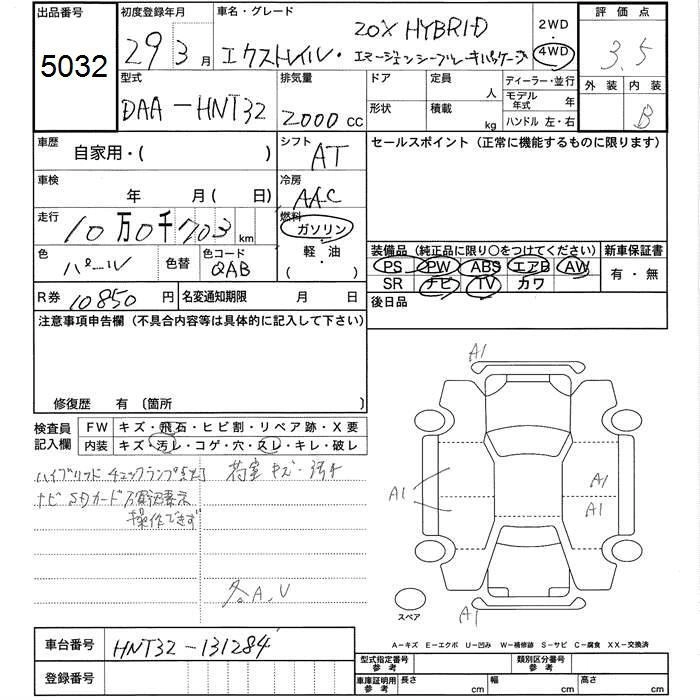 出品番号
5032
初度登録年月
29 3 月
車名・グレード
20X HYBRID
エクストレイル・エマージェンシーブレーキパッケージ
2WD
4WD
評価点
3.5
外装 内装
B
型式
DAA-HNT32
排気量
2000 cc
ドア
形状
定員 人
積載 kg
ディーラー・並行
モデル年式 年
ハンドル 左・右
車歴 自家用・( )
シフト AT
車検 年 月( 日)
冷房 AAC
走行 10万0千703 km
燃料 ガソリン
軽・油
( ・ )
色 パール
色替
色コード QAB
R券 10850 円
名変通知期限 月 日
セールスポイント (正常に機能するものに限ります)
装備品 (純正品に限り○をつけてください)
新車保証書
PS PW ABS エアB AW
有・無
SR ナビ TV カワ
後日品
注意事項申告欄 (不具合内容等は具体的に記入して下さい)
修復歴 有 (箇所 )
検査員記入欄
FW キズ・飛石・ヒビ割・リペア跡・X要
内装 キズ・汚レ・コゲ・穴・スレ・キレ・破レ
ハイブリッドチェックランプ点灯
荷室キズ・汚れ
ナビSDカード不適合表示
操作できず
各A、U
A1
A1
A1
A1
A1
スペア
A-キズ E-エクボ U-凹み W-補修跡 S-サビ C-腐食 XX-交換済
車台番号 HNT32-131284
登録番号
型式指定番号 参考
類別区分番号 参考
車庫証明用 参考
長さ cm
幅 cm
高さ cm